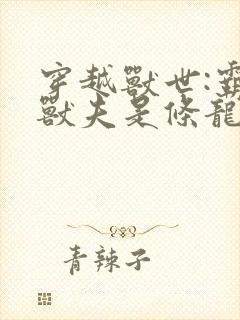 穿越獸世:霸
獸夫是條龍
青辣子